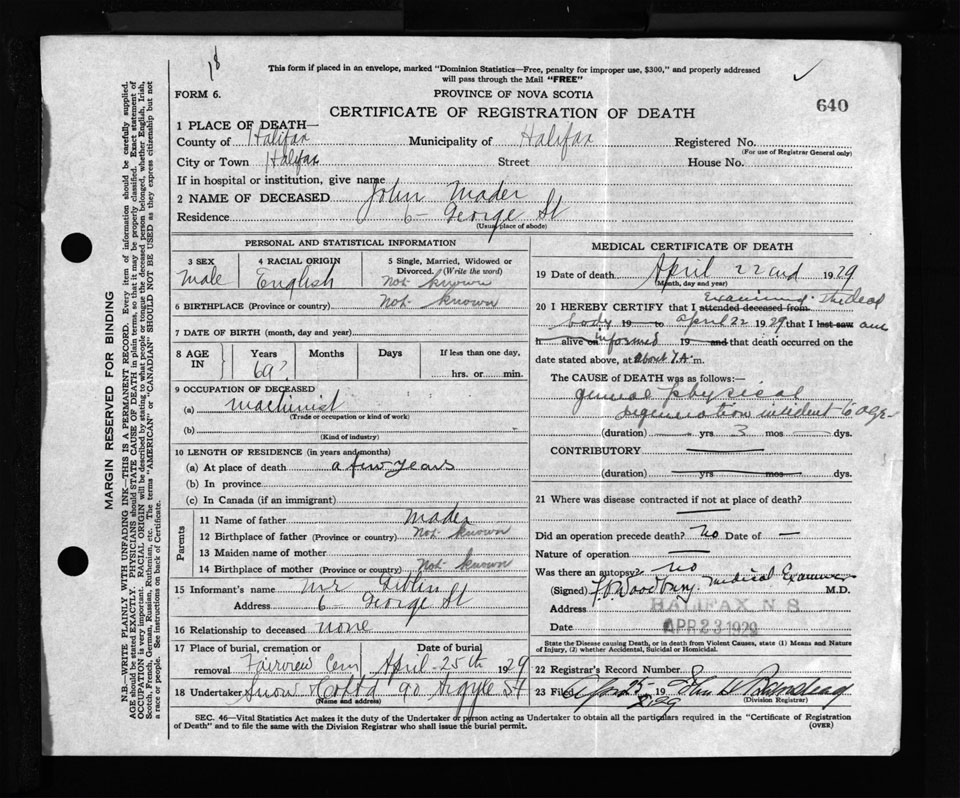 18
This form if placed in an envelope, marked "Dominion Statistics—Free, penalty for improper use, $300," and properly addressed
will pass through the Mail "FREE"
FORM 6.
PROVINCE OF NOVA SCOTIA
640
CERTIFICATE OF REGISTRATION OF DEATH
1 PLACE OF DEATH—
County of Halifax Municipality of Halifax Registered No.
(For use of Registrar General only)
City or Town Halifax Street House No.
If in hospital or institution, give name
2 NAME OF DECEASED John Mader
Residence 6- George St
(Usual place of abode)
PERSONAL AND STATISTICAL INFORMATION
3 SEX
Male
4 RACIAL ORIGIN
English
5 Single, Married, Widowed or
Divorced. (Write the word)
Not known
6 BIRTHPLACE (Province or country) Not known
7 DATE OF BIRTH (month, day and year)
8 AGE
IN
Years
69?
Months
Days
If less than one day,
hrs. or min.
9 OCCUPATION OF DECEASED
(a) Machinist
(Trade or occupation or kind of work)
(b)
(Kind of industry)
10 LENGTH OF RESIDENCE (in years and months)
(a) At place of death a few years
(b) In province
(c) In Canada (if an immigrant)
Parents
11 Name of father Mader
12 Birthplace of father (Province or country) Not known
13 Maiden name of mother
14 Birthplace of mother (Province or country) Not known
15 Informant's name Mr Giblin
Address 6- George St
16 Relationship to deceased none
17 Place of burial, cremation or
removal Fairview Cem
Date of burial
April 25th 1929
18 Undertaker Snow & Co Ltd 90 Argyle St
(Name and address)
MEDICAL CERTIFICATE OF DEATH
19 Date of death April 22nd 1929
(Month, day and year)
20 I HEREBY CERTIFY that I attended deceased from Examined the dead
body 19 to April 22 1929 that I last saw am
h alive on informed 19 and that death occurred on the
date stated above, at about 7 A m.
The CAUSE OF DEATH was as follows:—
general physical
degeneration incident to age-
(duration) yrs 3 mos dys.
CONTRIBUTORY
(duration) yrs mos dys.
21 Where was disease contracted if not at place of death?
Did an operation precede death? No Date of —
Nature of operation —
Was there an autopsy? No
(Signed) Woodbury Medical Examiner M.D.
Address HALIFAX N S
Date APR 23 1929
State the Disease causing Death, or in death from Violent Causes, state (1) Means and Nature
of Injury, (2) whether Accidental, Suicidal or Homicidal.
22 Registrar's Record Number
23 Filed 25 19
1929
(Division Registrar)
SEC. 46—Vital Statistics Act makes it the duty of the Undertaker or person acting as Undertaker to obtain all the particulars required in the "Certificate of Registration
of Death" and to file the same with the Division Registrar who shall issue the burial permit.
(OVER)
MARGIN RESERVED FOR BINDING
N.B.—WRITE PLAINLY, WITH UNFADING INK—THIS IS A PERMANENT RECORD. Every item of information should be carefully supplied.
AGE should be stated EXACTLY. PHYSICIANS should STATE CAUSE OF DEATH in plain terms, so that it may be properly classified. Exact statement of
OCCUPATION is very important. RACIAL ORIGIN will be described by stating to what people or tongue the deceased person belonged, whether English, Irish,
Scotch, French, German, Russian, Ruthenian, etc. The terms "AMERICAN" or "CANADIAN" SHOULD NOT BE USED as they express citizenship but not
a race or people. See instructions on back of Certificate.